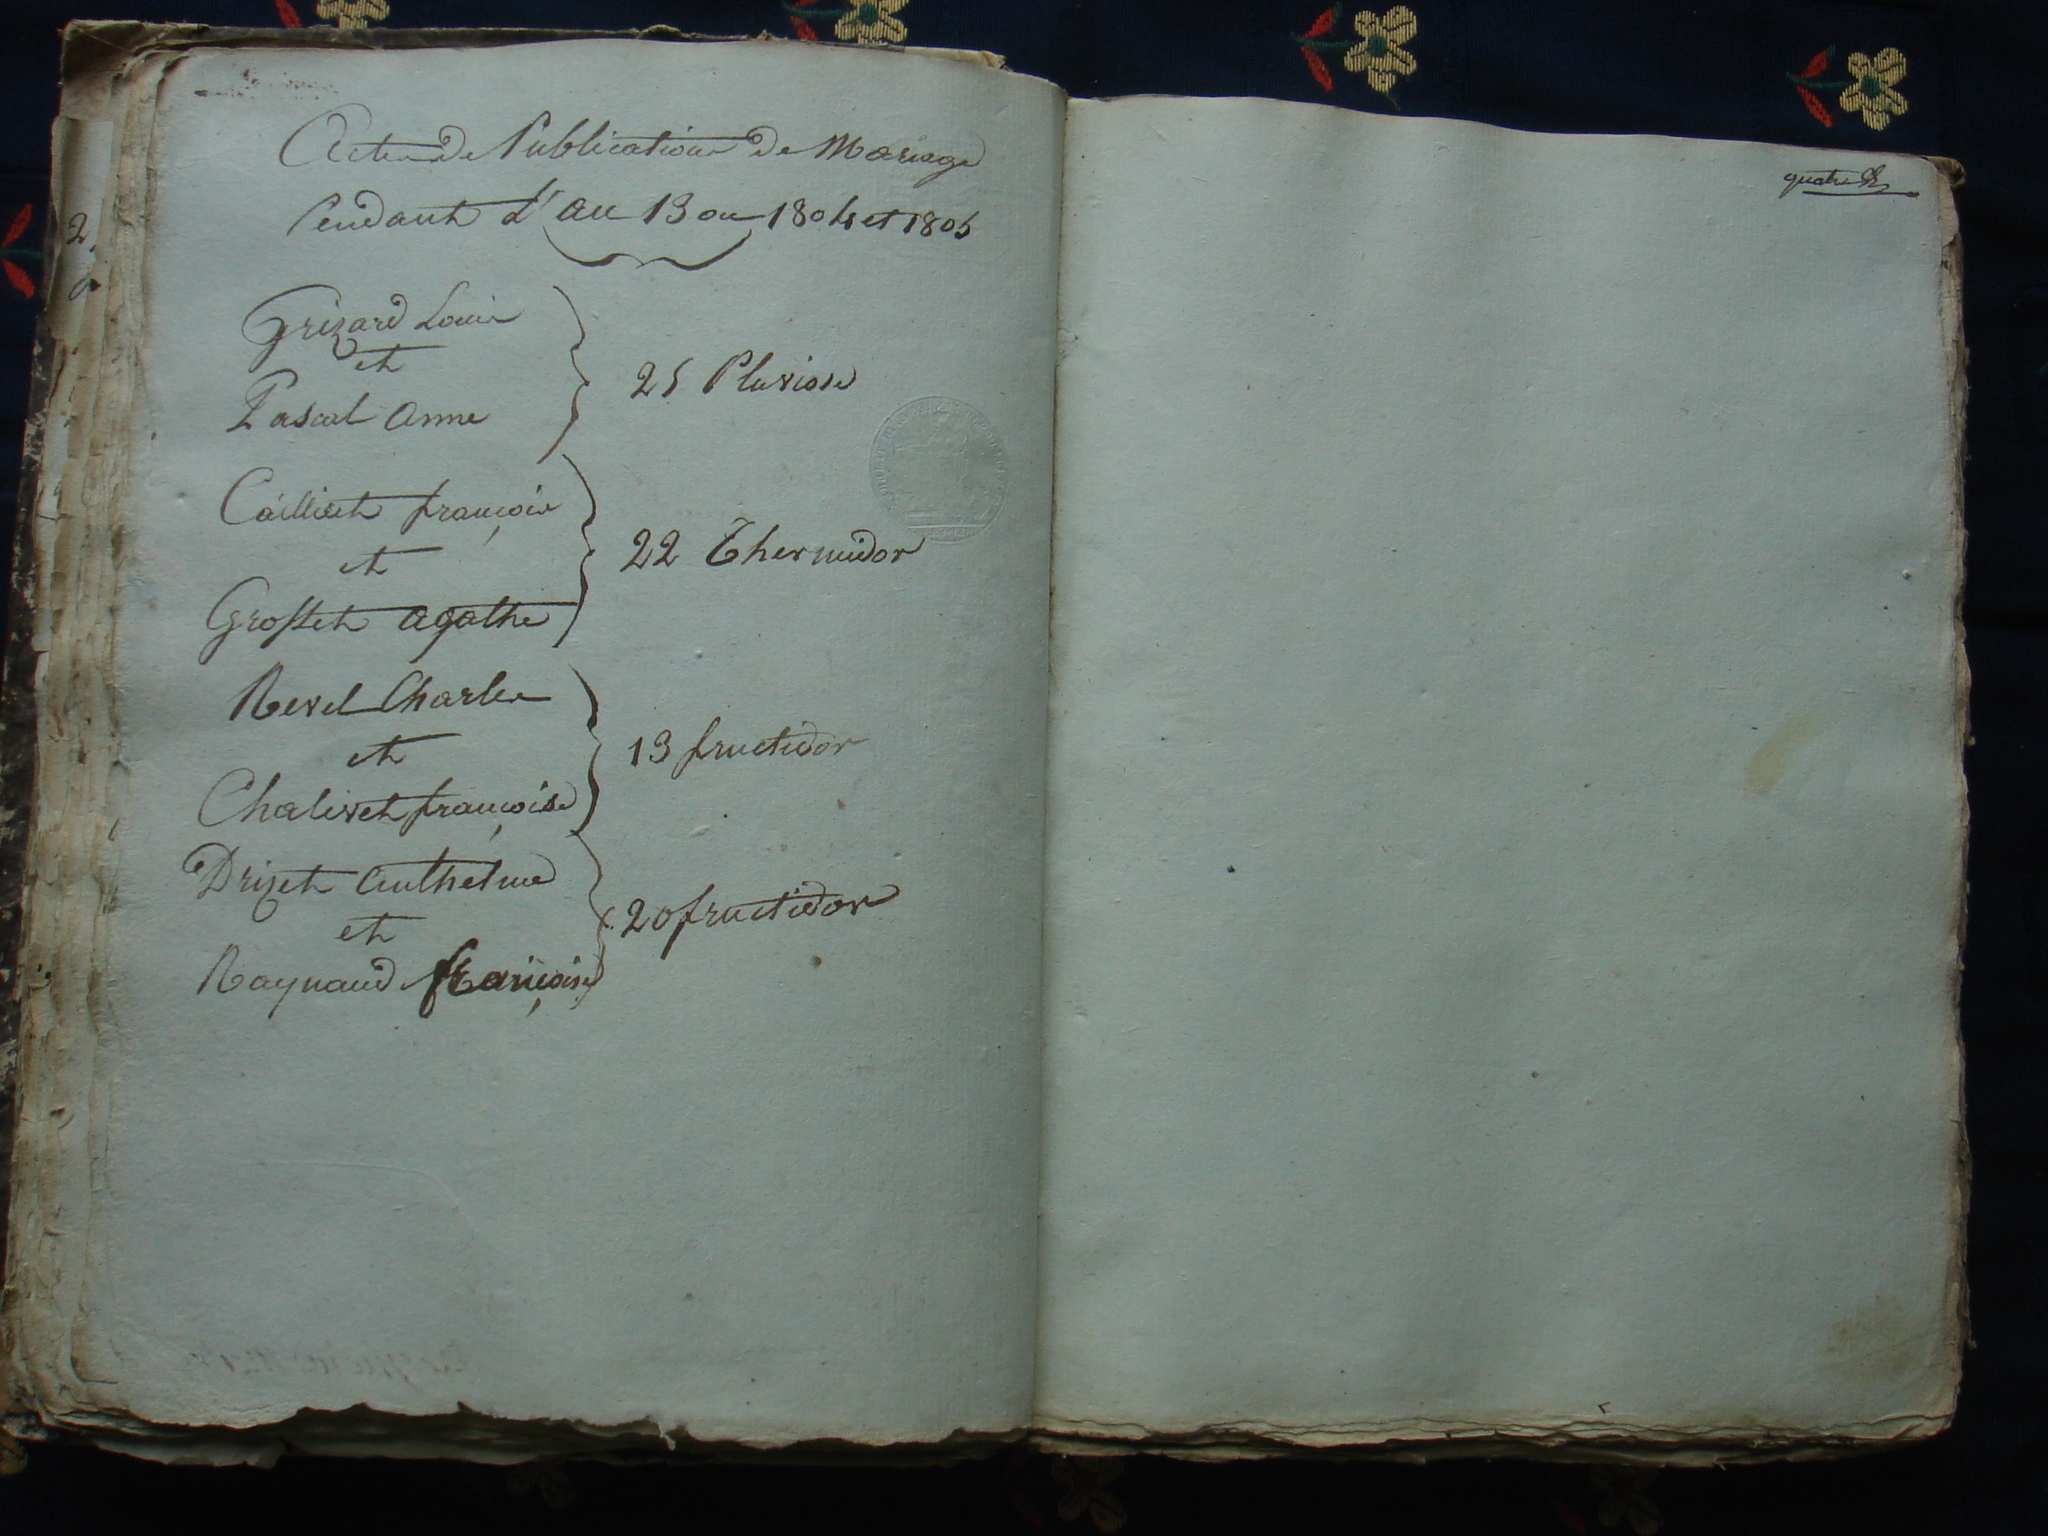 Actes de Publications de Mariage
Pendant L'an 13 ou 1804 et 1805
Grizard Louis
et
Pascal Anne
25 Pluviose
Cailliet françois
et
Grosset agathe
22 Thermidor
Revel Charles
et
Chalivet françoise
13 fructidor
Drizet Anthelme
et
Raynaud françoise
20 fructidor
quatre
2